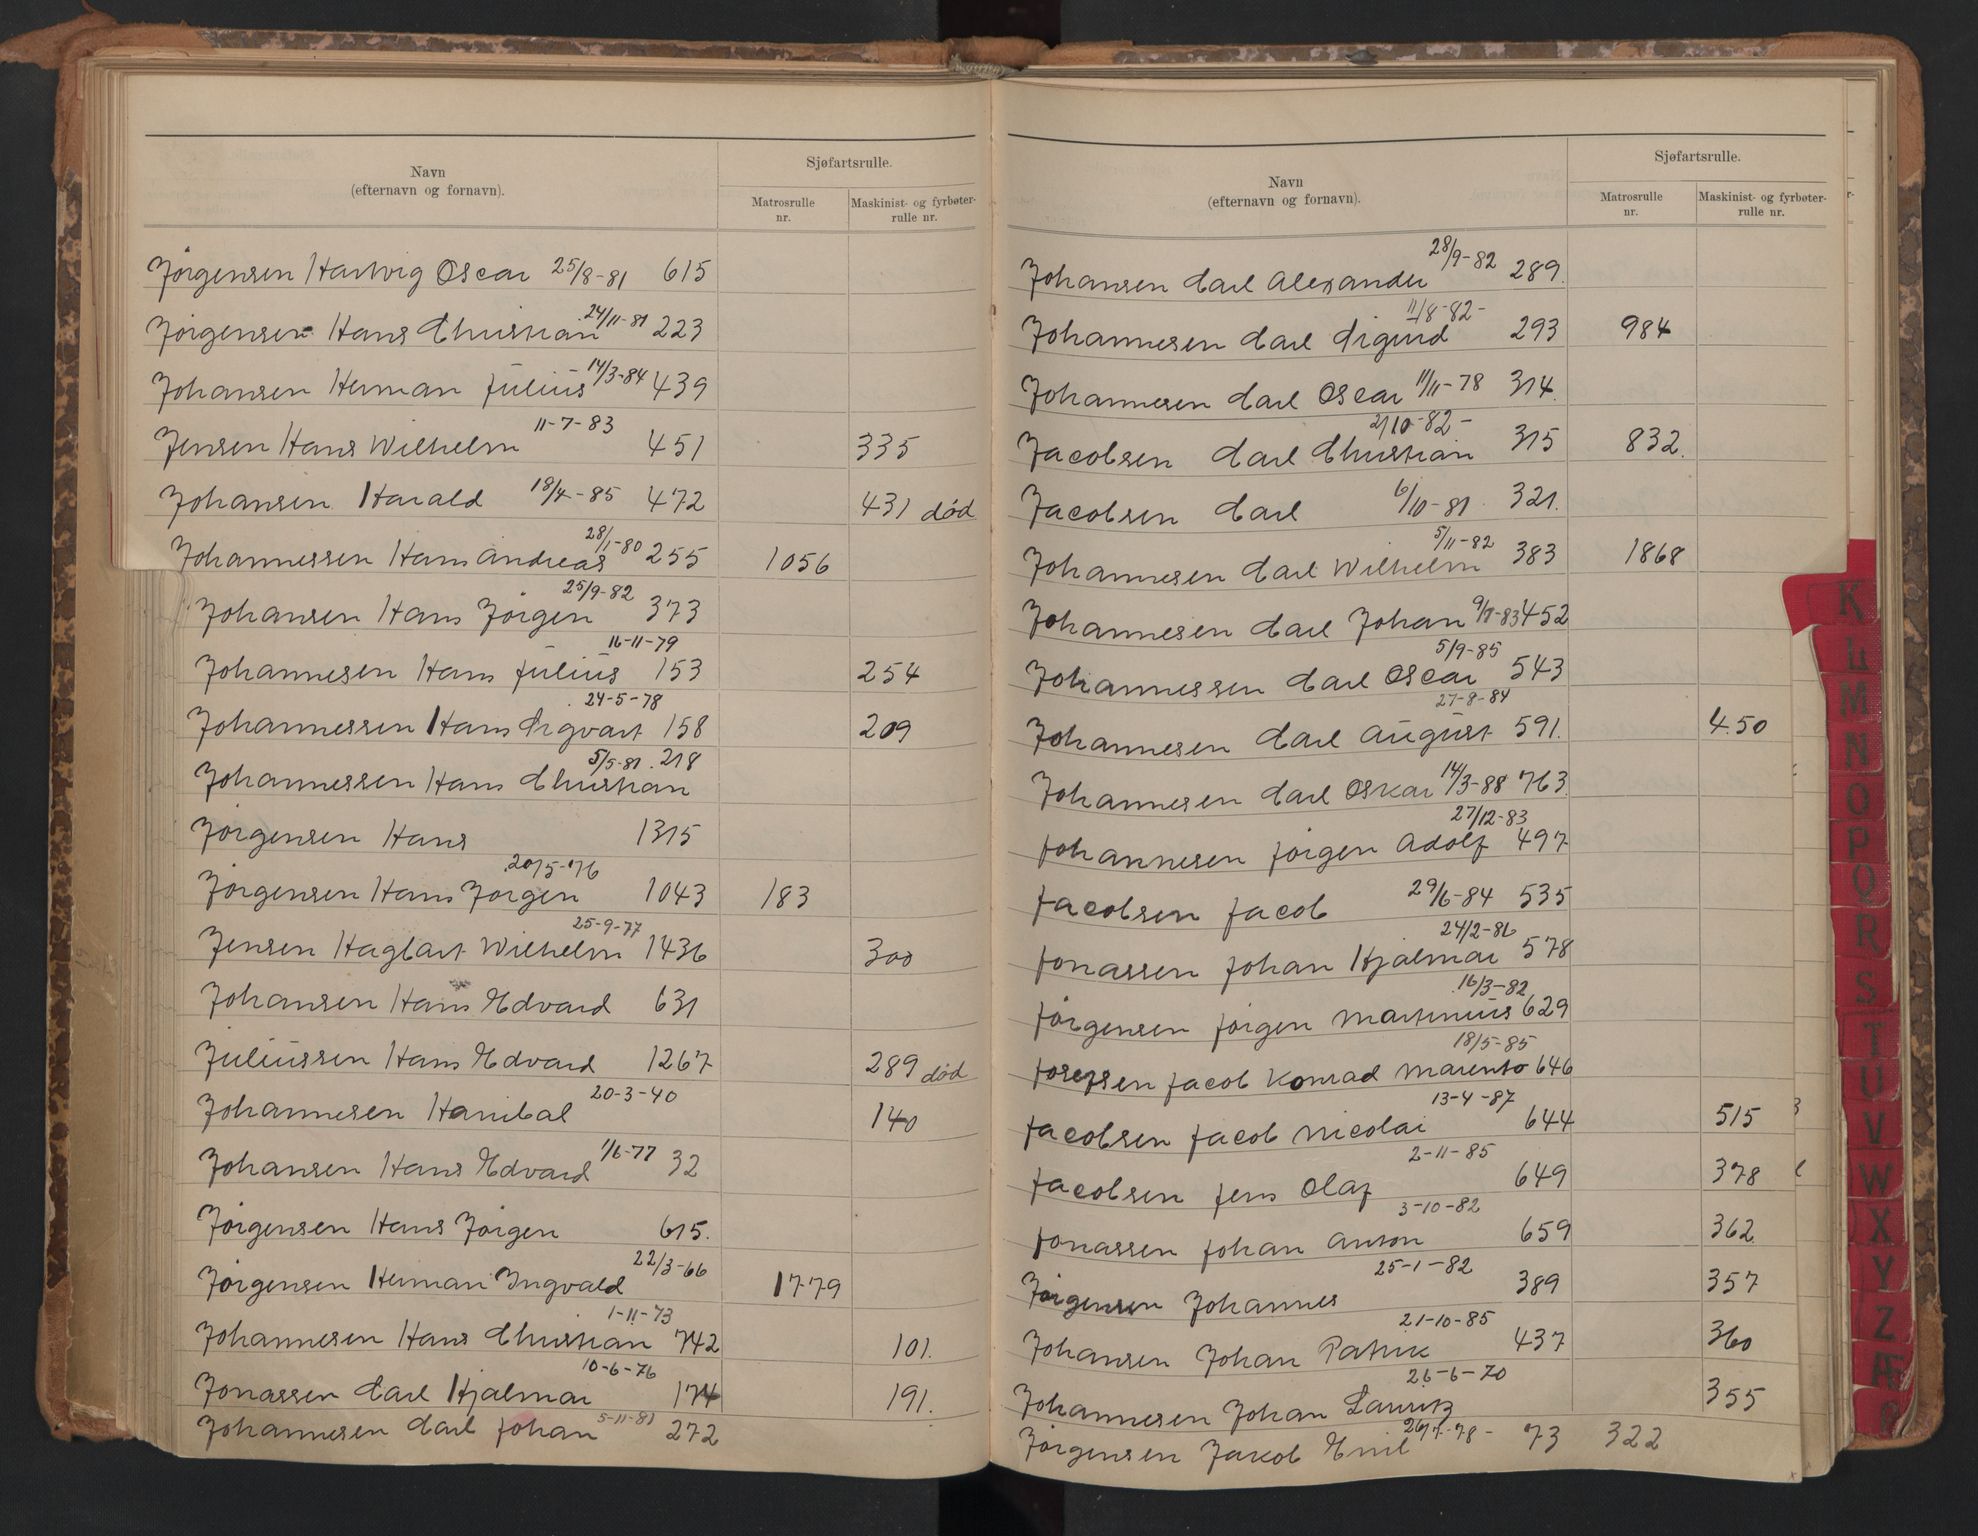 Navn
(efternavn og fornavn).
Sjøfartsrulle.
Matrosrulle nr.
Maskinist- og fyrbøter-rulle nr.
Jørgensen Hartvig Oscar 25/8-81 615
Jørgensen Hans Christian 24/11-81 223
Johansen Herman Julius 14/3-84 439
Jensen Hans Wilhelm 11-7-83 451 335
Johansen Harald 18/4-85 472 431 død
Johannessen Hans Andreas 28/1-80 255 1056
Johansen Hans Jørgen 25/9-82 373
Johannesen Hans Julius 16-11-79 153 254
Johannessen Hans Sigvart 24-5-78 158 209
Johannessen Hans Christian 5/5-81 218
Jørgensen Hans 1315
Jørgensen Hans Jørgen 20/5-76 1043 183
Jensen Hagbart Wilhelm 25-9-77 1436 300
Johansen Hans Edvard 631
Juliussen Hans Edvard 1267 289 død
Johannesen Hanibal 20-3-40 140
Johansen Hans Edvard 1/6-77 32
Jørgensen Hans Jørgen 615.
Jørgensen Herman Ingvald 22/3-66 1779
Johannesen Hans Christian 1-11-73 742 101.
Jonassen Carl Hjalmar 10-6-76 174 191.
Johannesen Carl Johan 5-11-81 272
Navn
(efternavn og fornavn).
Sjøfartsrulle.
Matrosrulle nr.
Maskinist- og fyrbøter-rulle nr.
Johansen Carl Alexander 28/9-82 289.
Johannesen Carl Sigurd 11/8-82- 293 984
Johannesen Carl Oscar 11/11-78 314.
Jacobsen Carl Christian 2/10-82- 315 832.
Jacobsen Carl 6/10-81 321.
Johannesen Carl Wilhelm 5/11-82 383 1868
Johannesen Carl Johan 9/8-83 452
Johannessen Carl Oscar 5/9-85 543
Johannesen Carl August 27-8-84 591. 450
Johannesen Carl Oskar 14/3-88 763.
Johannesen Jørgen Adolf 27/12-83 497
Jacobsen Jacob 29/6-84 535
Jonassen Johan Hjalmar 24/2-86 578
Jørgensen Jørgen Martinius 16/3-82 629
Josefsen Jacob Konrad Marento 18/5-85 646
Jacobsen Jacob Nicolai 13-4-87 644 515
Jacobsen Jens Olaf 2-11-85 649 378
Jonassen Johan Anton 3-10-82 659 362
Jørgensen Johannes 25-1-82 389 357
Johansen Johan Patrik 21-10-85 437 360
Johannesen Johan Lauritz 26-6-70 355
Jørgensen Jakob Emil 26/7-78- 73 322
K
L
M
N
O
P
Q
R
S
T
U
V
W
X
Y
Z
Æ
Ø